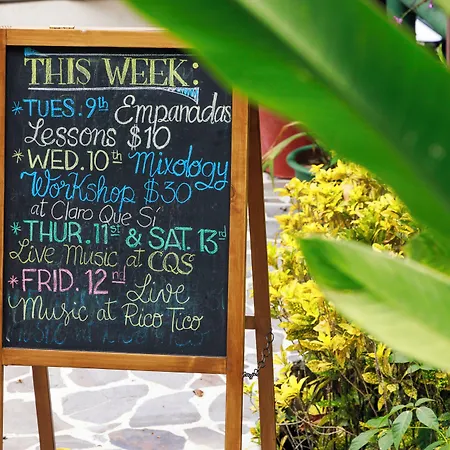 THIS WEEK:
* TUES. 9th Empanadas
Lessons $10
* WED. 10th Mixology
Workshop $30
at Claro Que Sí
* THUR. 11st & SAT. 13rd
Live Music at CQS
* FRID. 12nd Live
Music at Rico Tico